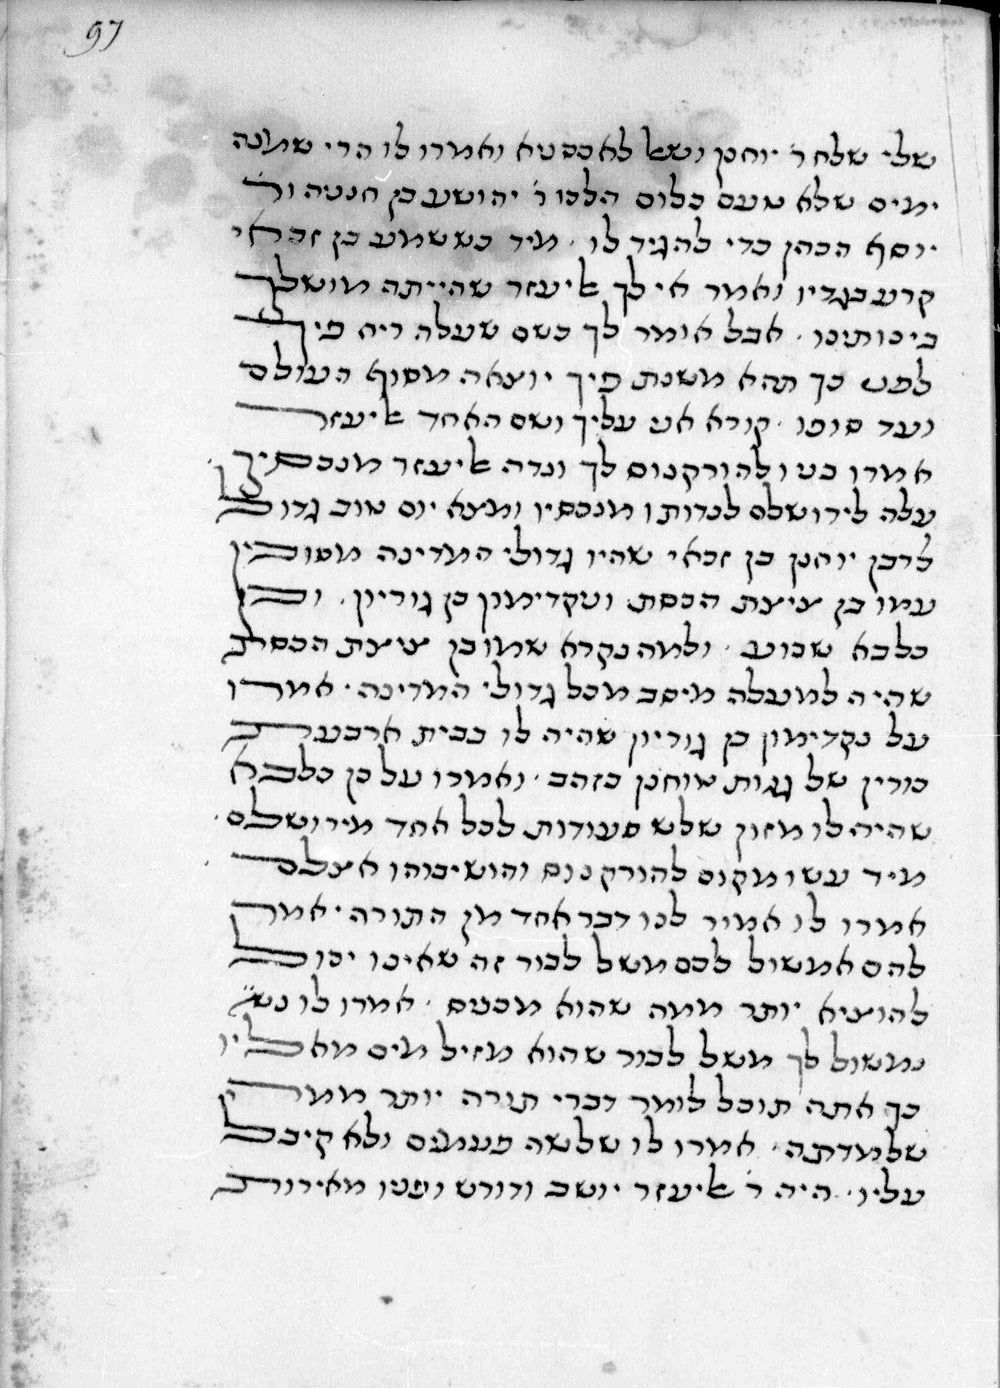 97
שלי שלח ר׳ יוחנן ושאל לאכסניא ואמרו לו הרי שמונה
ימים שלא טעם כלום הלכו ר׳ יהושע בן חנניה ור׳
יוסף הכהן כדי להגיד לו · מיד כששמע בן זכאי
קרע בגדיו ואמר אי לך אליעזר שהייתה מושלך
בינותינו · אבל אומר לך כשם שעלה ריח פיך
לפני כך תהא משנת פיך יוצאה מסוף העולם
ועד סופו · קורא אני עליך ושם האחד אליעזר
אמרו בניו להורקנוס לך ונדה אליעזר מנכסיך ·
עלה לירושלם לנדותו מנכסיו ומצא יום טוב גדול
לרבן יוחנן בן זכאי שהיו גדולי המדינה מסובין
עמו בן ציצת הכסת ונקדימון בן גוריון · ובן
כלבא שבוע · ולמה נקרא שמו בן ציצת הכסת
שהיה למעלה מיסב מכל גדולי המדינה · אמרו
על נקדימון בן גוריון שהיה לו בבית ארבעת
כורין של גגות טוחנן כזהב · ואמרו על בן כלבא
שהיה לו מזון שלש סעודות לכל אחד מירושלם ·
מיד עשו מקום להורקנוס והושיבוהו אצלם
אמרו לו אמור לנו דבר אחד מן התורה · אמר
להם אמשול לכם משל לבור זה שאינו יכול
להוציא יותר ממה שהוא מכניס · אמרו לו
נמשול לך משל לבור שהוא מזיל מים מאליו
כך אתה תוכל לומר דברי תורה יותר ממה
שלמדתה · אמרו לו שלשה פעמים ולא קיבל
עליו · היה ר׳ אליעזר יושב ודורש ופניו מאירות